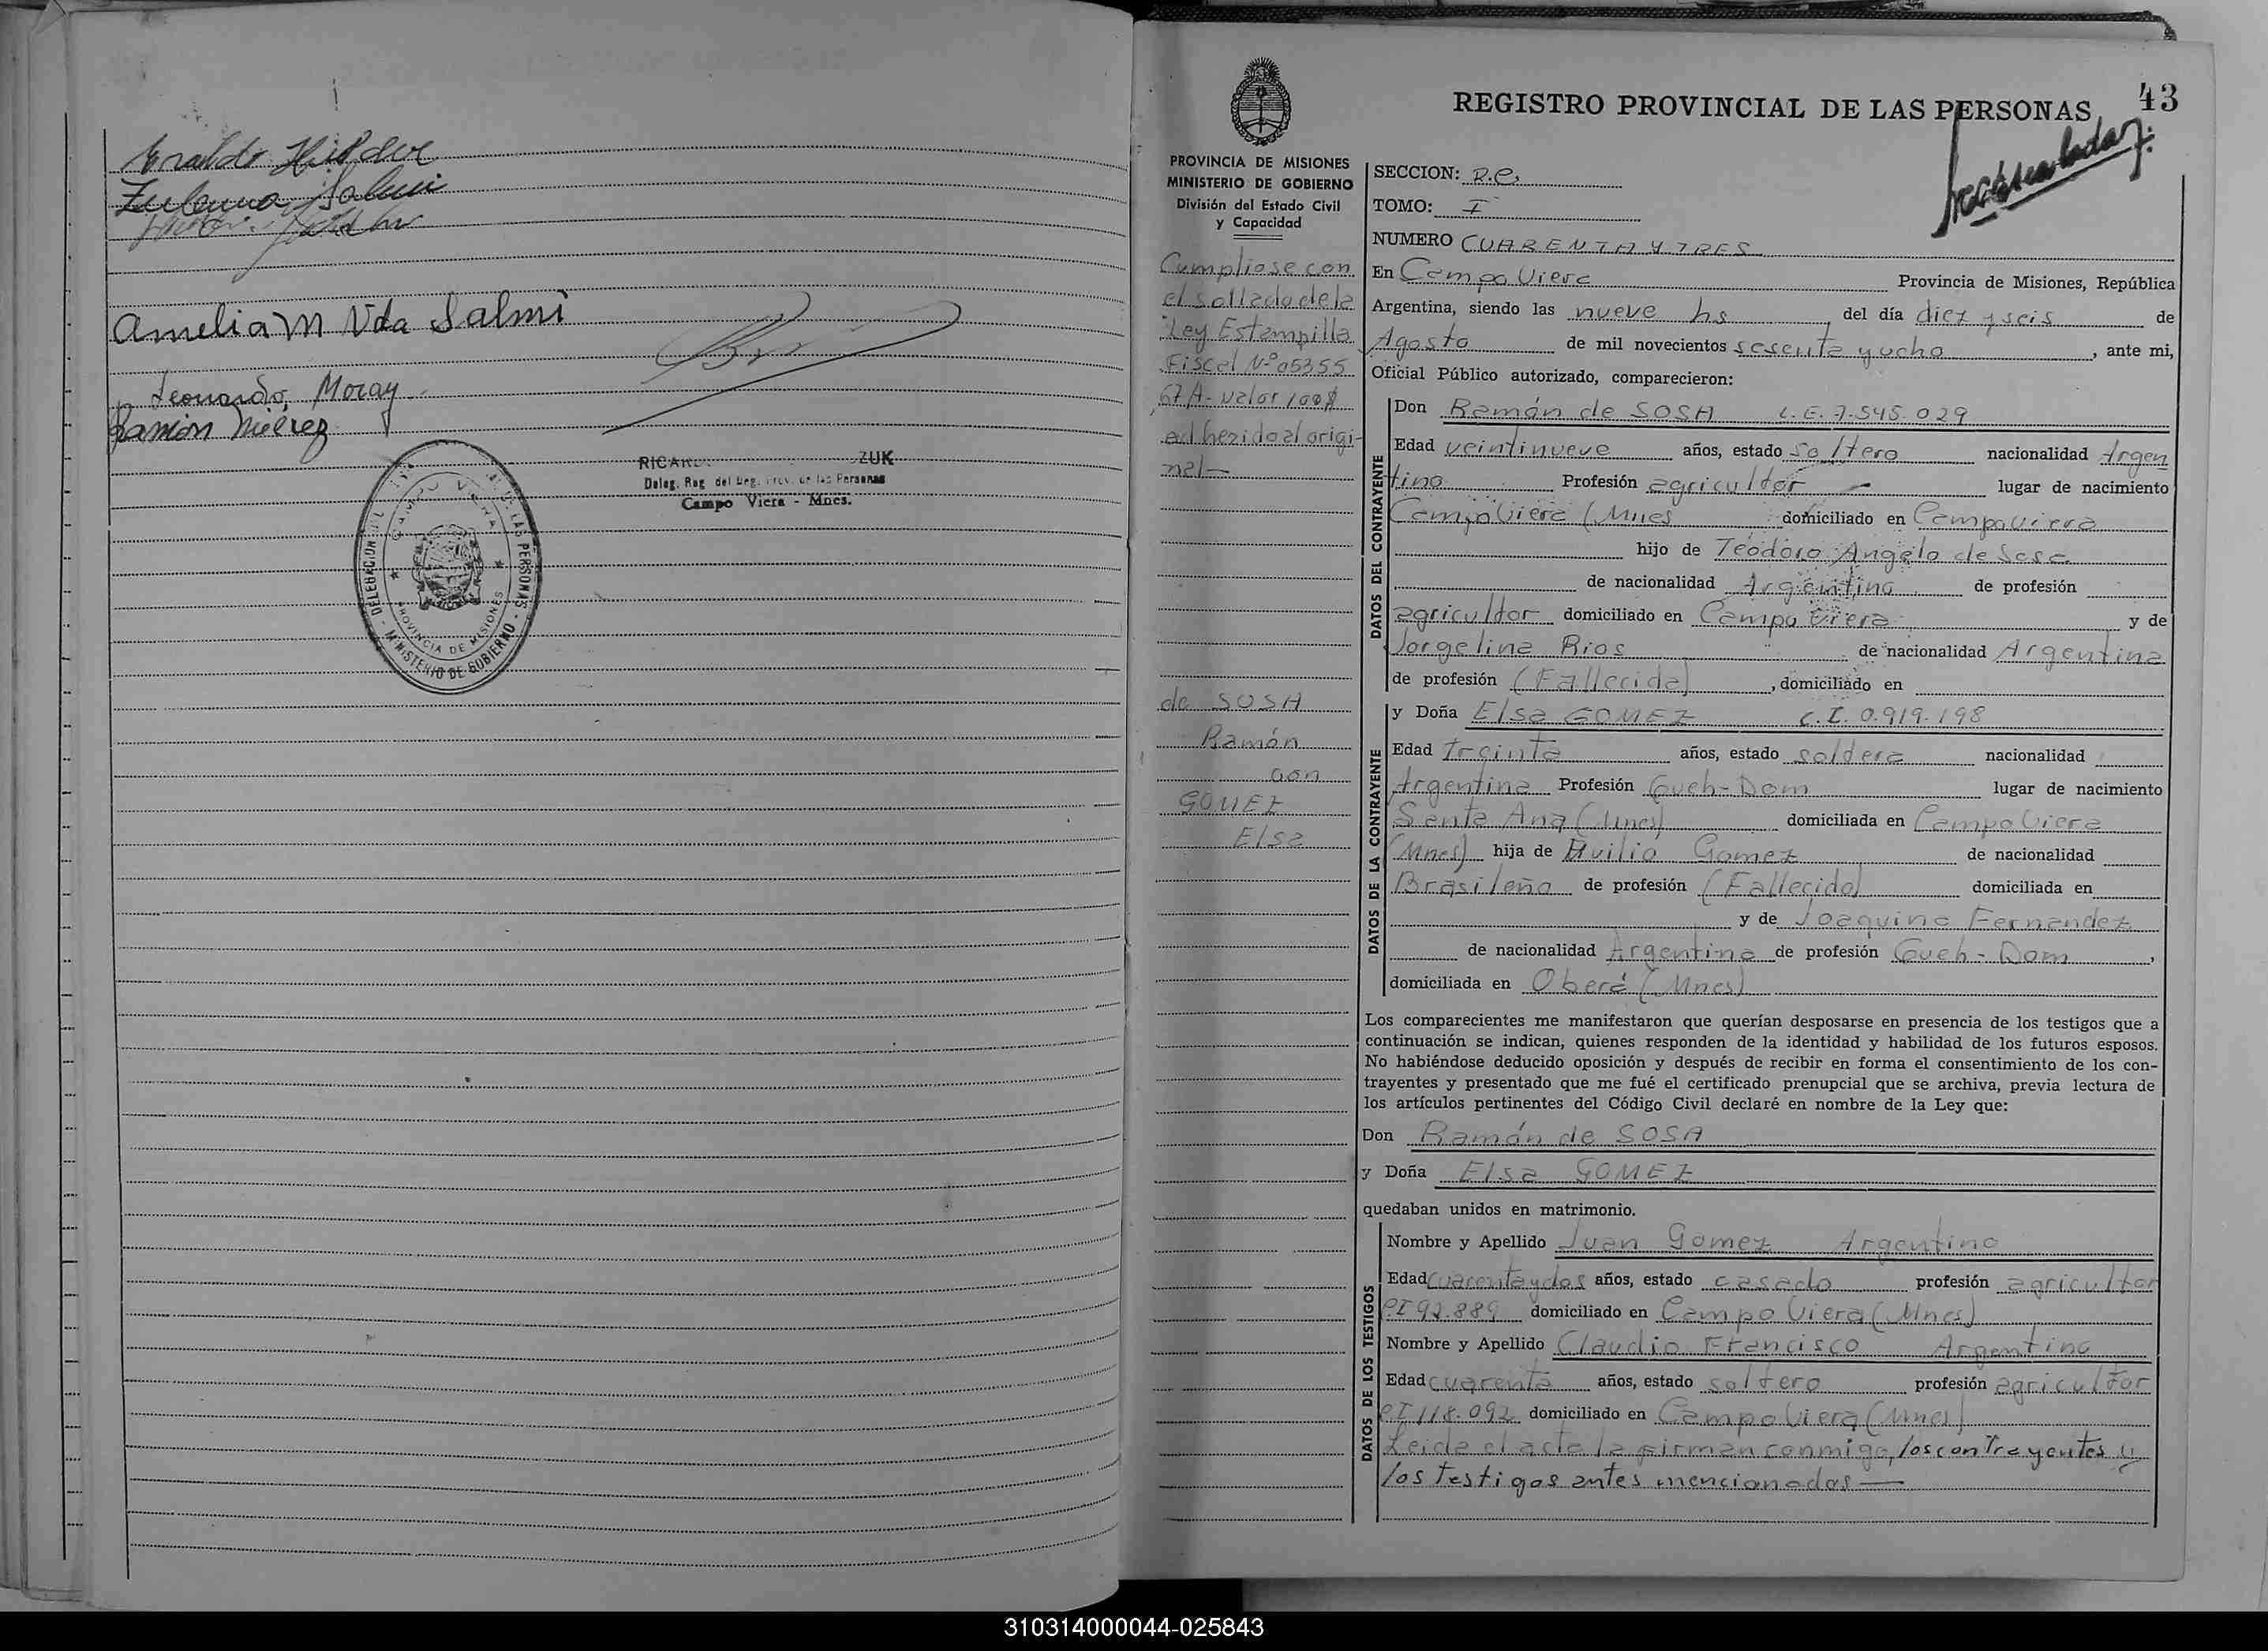 Zulema Salmi
Amelia M Vda Salmi
Leonardo Moray
Ramón
RICAR ZUK
Deleg. Reg. del Reg. Prov. de las Personas
Campo Viera - Mnes.
DELEGACION
DE LAS PERSONAS
CAMPO VIERA
PROVINCIA DE MISIONES
MINISTERIO DE GOBIERNO
43
REGISTRO PROVINCIAL DE LAS PERSONAS
PROVINCIA DE MISIONES
MINISTERIO DE GOBIERNO
División del Estado Civil
y Capacidad
Cumpliose con
el sellado de la
Ley Estampilla
Fiscal Nº 05355
67 A - valor 100$
adherido al origi-
nal-
de SOSA
Ramón
con
GOMEZ
Elsa
SECCION: D.C.
TOMO: I
NUMERO CUARENTA Y TRES
En Campo Viera Provincia de Misiones, República
Argentina, siendo las nueve hs, del día diez y seis de
Agosto de mil novecientos sesenta y ocho, ante mi,
Oficial Público autorizado, comparecieron:
DATOS DEL CONTRAYENTE
Don Ramón de SOSA L.E. 7.545.029
Edad veintinueve años, estado soltero nacionalidad Argen
tino Profesión agricultor lugar de nacimiento
Campo Viera (Mnes domiciliado en Campo Viera
hijo de Teodoro Angelo de Sosa
de nacionalidad Argentino de profesión
agricultor domiciliado en Campo Viera y de
Jorgelina Rios de nacionalidad Argentina
de profesión (Fallecida), domiciliado en
DATOS DE LA CONTRAYENTE
y Doña Elsa GOMEZ C.I. 0.919.198
Edad treinta años, estado soldera nacionalidad
Argentina Profesión Queh-Dom lugar de nacimiento
Santa Ana (Mnes) domiciliada en Campo Viera
(Mnes) hija de Avilio Gomez de nacionalidad
Brasileño de profesión (Fallecido) domiciliada en
y de Joaquina Fernandez
de nacionalidad Argentina de profesión Queh-Dom,
domiciliada en Oberá (Mnes)
Los comparecientes me manifestaron que querían desposarse en presencia de los testigos que a
continuación se indican, quienes responden de la identidad y habilidad de los futuros esposos.
No habiéndose deducido oposición y después de recibir en forma el consentimiento de los con-
trayentes y presentado que me fué el certificado prenupcial que se archiva, previa lectura de
los artículos pertinentes del Código Civil declaré en nombre de la Ley que:
Don Ramón de SOSA
y Doña Elsa GOMEZ
quedaban unidos en matrimonio.
DATOS DE LOS TESTIGOS
Nombre y Apellido Juan Gomez Argentino
Edad cuarenta y dos años, estado casado profesión agricultor
CI 92.889 domiciliado en Campo Viera (Mnes)
Nombre y Apellido Claudio Francisco Argentino
Edad cuarenta años, estado soltero profesión agricultor
CI 118.092 domiciliado en Campo Viera (Mnes)
Leida el acta la firman conmigo, los contrayentes y
los testigos antes mencionados—
310314000044-025843